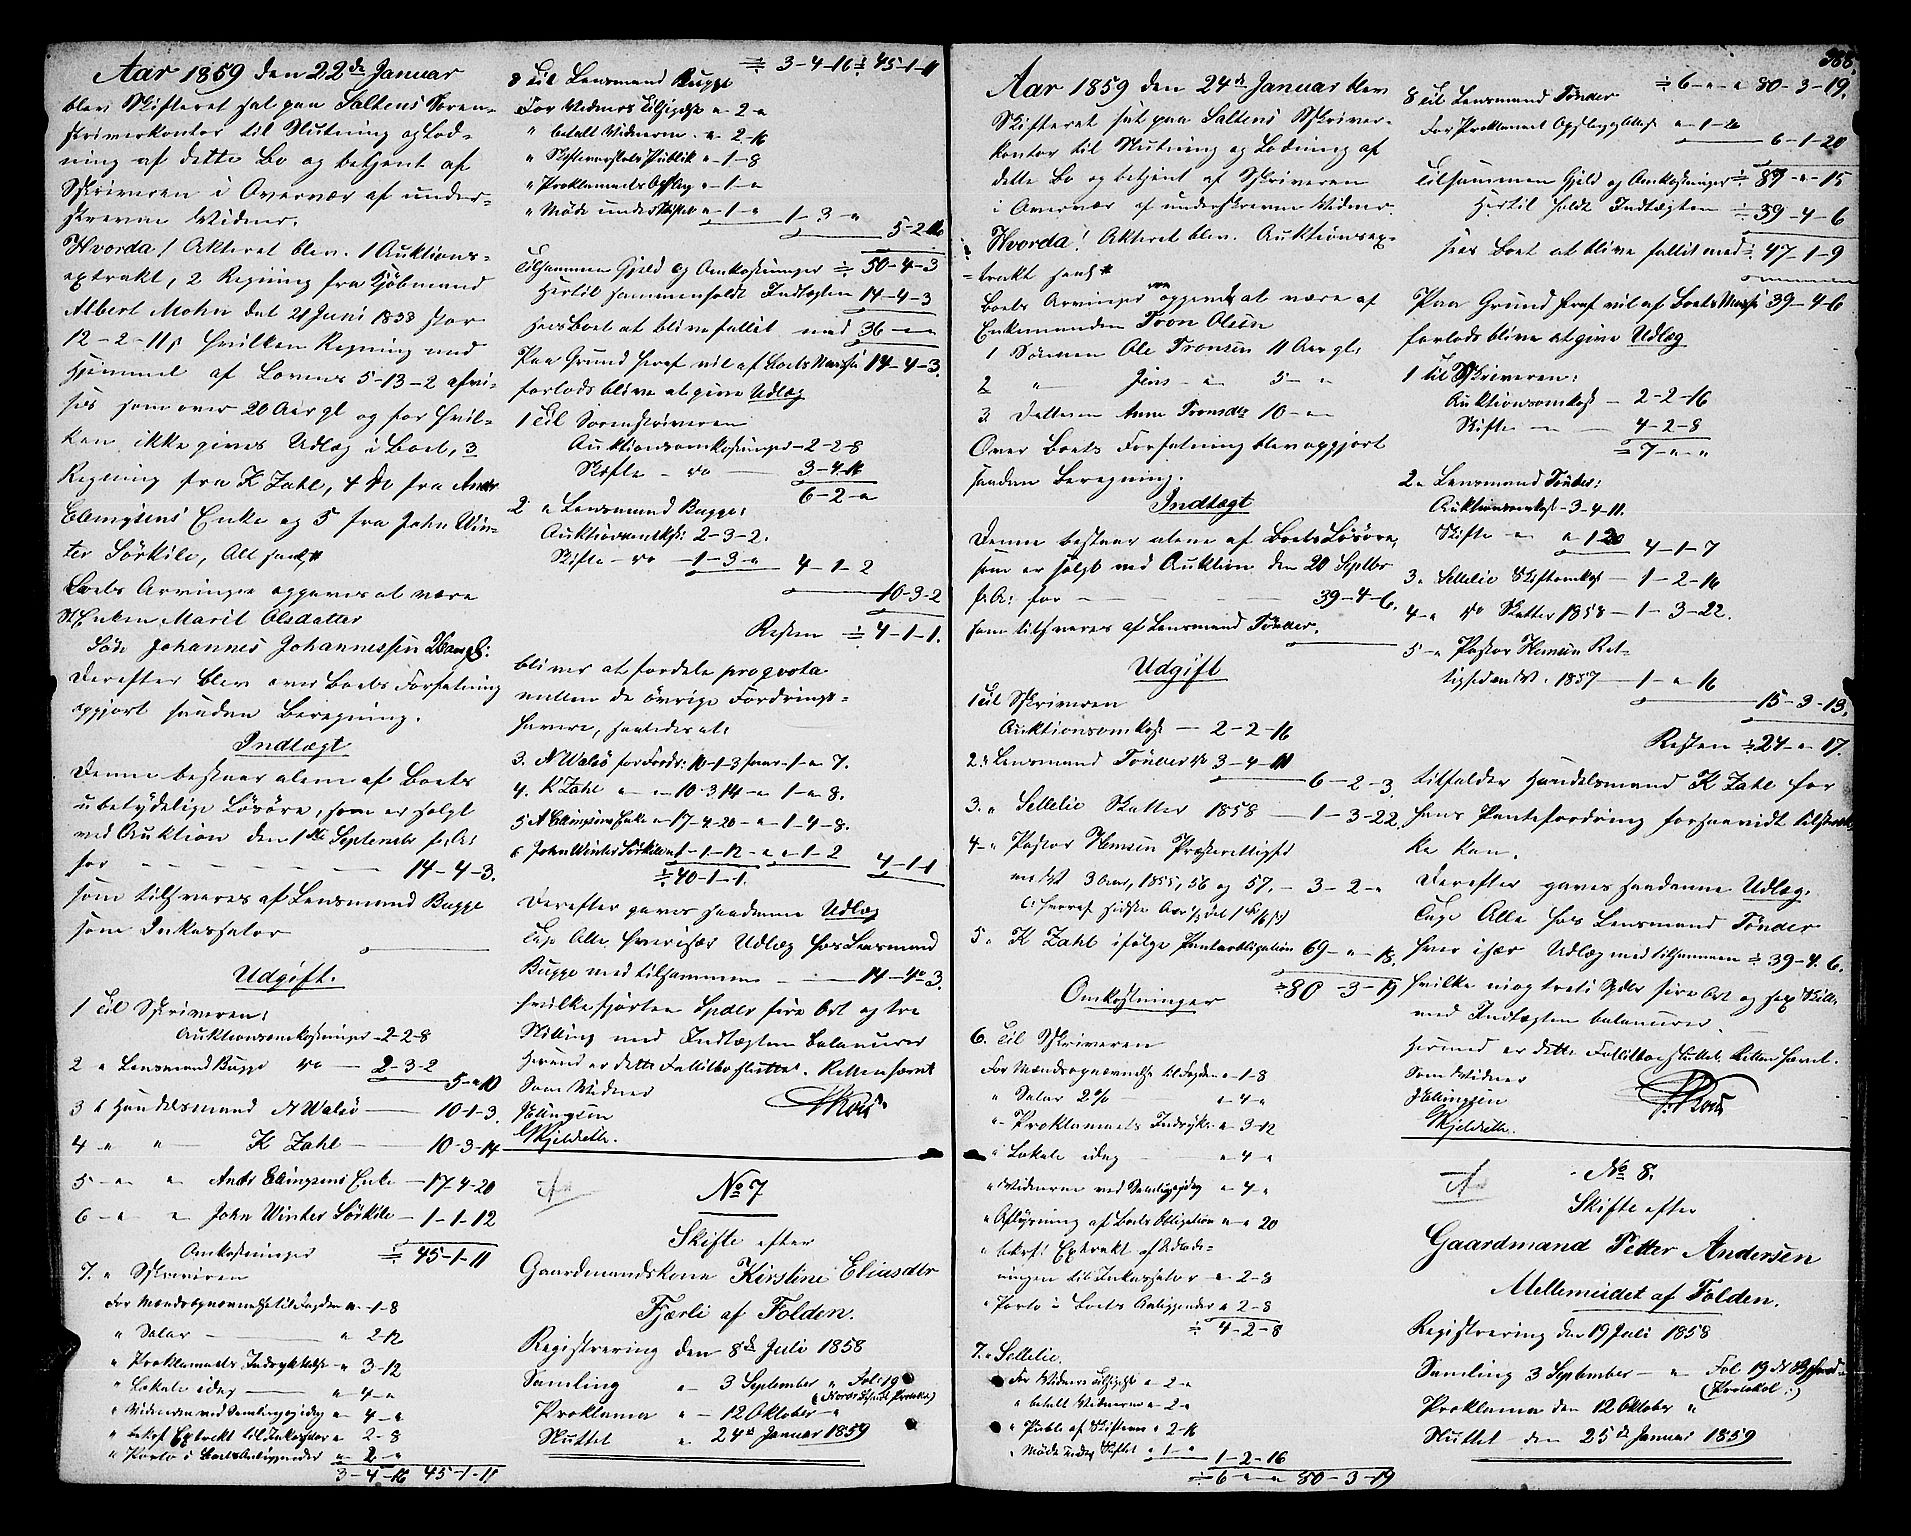 Aar 1859 den 22de Januar
blev Skifteret sat paa Saltens Soren-
skriverkontor til Slutning og Lod-
ning af dette Bo og betjent af
Sskriveren i Overvær af under-
skrevne Vidner.
Hvorda! Akteret blev. 1 Auktions-
extrakt, 2 Regning fra Kjöbmand
Albert Mohn dat 21 Juni 1838 stor
12-2-11 s hvilken Regning med
Hjemmel af Lovens 5-13-2 afvi-
ses som over 20 Aar gl og for hvil-
ken ikke gives Udlæg i Boet, 3
Regning fra K Zahl, 4 do fra Ands
Ellingsens Enke og 5 fra John Win-
ter Sörkile, Alt saal#
Boets Arvinger opgaves at være
Enken Marit Olsdatter
Söde Johannes Johannessen
Derefter blev over Boets Forfatning
opgjort saadan Beregning.
Indtægt
Denne bestaar alene af Boets
ubetydelige Lösöre, som er solgt
ved Auktion den 1ste Septembr f. A:
for - - - - - 14-4-3.
som tilsvares af Lensmand Bugge
som Inkassator
Udgift.
1 Til Sskriveren:
Auktionsomkostninger 2-2-8
2 " Lensmand Bugge do - 2-3-2
5-"-10
3 " Handelsmand N Walsö - 10-1-3
4 " " - K Zahl - 10-3-14
5 - " " Ands Ellingsens Enke - 17-4-20
6 - " " John Winter Sörkile - 1-1-12
Omkostninger ÷ 45-1-11
7. " Sskriveren
For Mændsopnævnelse til Fogden " -1-8
" Salær - " 2-12
" Proklamaets Indrykkelse " 3-12
" Lokale idag - " 4-"
" Vidnerne ved Samlingsdag " -4-"
" bekr Extrakt til Inkassator " 2-8
" Porto i Boets Anliggender " 2-"
3-4-16 45-1-11
÷ 3-4-16 ÷ 45-1-11
8 Til Lensmand Bugge
For Vidners Tilsigelse " -2-"
" betalt Vidnerne - " -2-16
" Skiftesamlings Publik " -1-8
" Proklamaets Opslag " -1-"
" Möde under Skiftet " -1-" 1-3-"
5-2-16
Tilsammen Gjæld og Omkostninger ÷ 50-4-3
Hertil sammenholdt Indtægten 14-4-3
sees Boet at blive fallit med 36-"-"
Paa Grund heraf vil af Boets Masse 14-4-3.
forlods blive at give Udlæg
1 Til Sorenskriveren
Auktionsomkostninger - 2-2-8
Skifte - do - 3-4-16
6-2-"
2 " Lensmand Bugge:
Auktionsomkst: 2-3-2.
Skifte - do - 1-3-" 4-1-2
10-3-2
Resten ÷ 4-1-1.
bliver at fordele pro qvota
mellem de övrige Fordrings-
havere, saaledes at:
3. N Walsö for Fordr: 10-1-3 faar - 1-"-7.
4. K Zahl " - 10-3-14 - " 1-"-8.
5 A Ellingsens Enke " - 17-4-20 - " 1-4-8.
6 John Winter Sörkile " 1-1-12 - " " -1-2 4-1-1
÷ 40-1-1.
Derefter gaves saadanne Udlæg
Tage Alle hver især Udlæg hos Lensmand
Bugge med tilsammen - 14-4-3.
hvilke fjorten Spdlr fire Ort og tre
Skilling med Indtægten balancerer
Hermed er dette Fallitbo sluttet. Retten hævet
Som Vidner
JEllingsen
GKjeldseth.
No 7
Skifte efter
Gaardmandskone Kirstine Eliasdtr
Fjærli af Folden.
Registrering den 8de Juli 1858
Samling " - 3 September " Fol: 19
Proklama " - 12 Oktober - "
Sluttet " 24de Januar 1859
388.
Aar 1859 den 24de Januar blev
Skifteret sat paa Saltens Sskriver-
kontor til Slutning og Lodning af
dette Bo og betjent af Sskriveren
i Overvær af underskrevne Vidner.
Hvorda! Akteret blev. Auktionsex-
trakt saal#
Boets Arvinger opgaves at være af
Enkemanden Tron Olsen
1 Sönnen Ole Tronsen 11 Aar gl:
2 " - Jens - " 5 - "
3. Datteren Anne Tronsdtr 10 - " -
Over Boets Forfatning blev opgjort
saadan Beregning.
Indtægt
Denne bestaar alene af Boets Lösöre,
som er solgt ved Auktion den 20 Septbr
f. A: for - - - - 39-4-6.
som tilsvares af Lensmand Tönder.
Udgift
1 Til Sskriveren
Auktionsomkst - 2-2-16
2 : Lensmand Tönder do 3-4-11
6-2-3.
3. " Sellelie Skatter 1858 - 1-3-22.
4 - " Pastor Hemsen Præsterettighed
3 Aar, 1855, 56 og 57. - 3-2-"
5. " K Zahl ifölge Panteobligation 69-"-18.
÷ 80-3-19
Omkostninger
6. Til Sskriveren
For Mændsopnævnelse til Fogden " -1-8
" Salær 2% - " -4-"
" Proklamaets Indrykn " -3-12
" Lokale idag - " -4-"
" Vidnerne ved Samlingsdag " -4-"
" Aflysning af Boets Obligation " -" 20
" bekr: Extrakt af Udlod-
ningen til Inkassator " -2-8
" Porto i Boets Anliggender " 2-8
÷ 4-2-8
7. " Sellelie.
For Vidners Tilsigelse " -2-"
" betalt Vidnerne " -2-"
" Publ: af Skiftesam " 2-16
" Möde under Skiftet " 1-"
1-2-16
÷ 6-"-" 80-3-19
÷ 6-"-" 80-3-19.
8 Til Lensmand Tönder
For Proklamaets Opslag - 1-20
6-1-20
Tilsammen Gjeld og Omkostninger ÷ 87-"-15
Hertil holdt Indtægten ÷ 39-4-6
sees Boet at blive fallit med ÷ 47-1-9
Paa Grund heraf vil af Boets Masse 39-4-6
forlods blive at give Udlæg
1 Til Sskriveren:
Auktionsomkst - 2-2-16
Skifte - " - 4-2-8
÷ 7-"-"
2 " Lensmand Tönder:
Auktionsomkst - 3-4-11.
Skifte - " " 1-20 4-1-7
3. " Sellelie Skifteomkst - 1-2-16
4 - " do Skatter 1858 - 1-3-22.
5 - " Pastor Hemsen Ret-
tighed 1857 - 1-"-16
15-3-13.
Resten ÷ 24-"-17.
tilfalder Handelsmand K Zahl for
hans Pantefordring forsaavidt tilstræk-
ke kan.
Derefter gaves saadanne Udlæg.
Tage Alle hos Lensmand Tönder
hver især Udlæg med tilsammen ÷ 39-4-6.
hvilke ni og treti Spdlr fire Ort og sex Skill:
med Indtægten balancerer
Hermed er dette Fallitbo sluttet. Retten hævet.
Som Vidner
JEllingsen
GKjeldseth.
No 8.
Skifte efter
Gaardmand Petter Andersen
Mellemeidet af Folden.
Registrering den 19 Juli 1858
Samling 3 September - " Fol 19
Proklama den 12 Oktober "
Sluttet den 25de Januar 1859